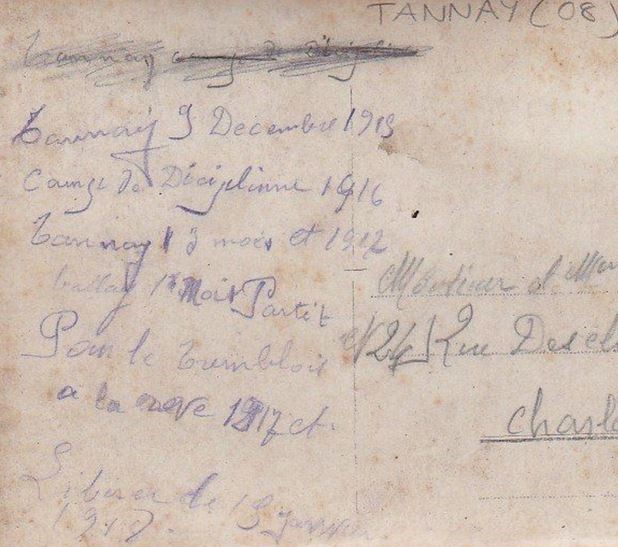 TANNAY (08)
Tannay camp de
Tannay 9 Decembre 1915
Camp de Diciplinne 1916
Tannay 13 mois et 1917
1r Mois Partit
Pour le Tremblois
a la 1917 et
Liberer le 15 janvier
191
Monsieur et Mm
N 24 Rue Des cl
Charl